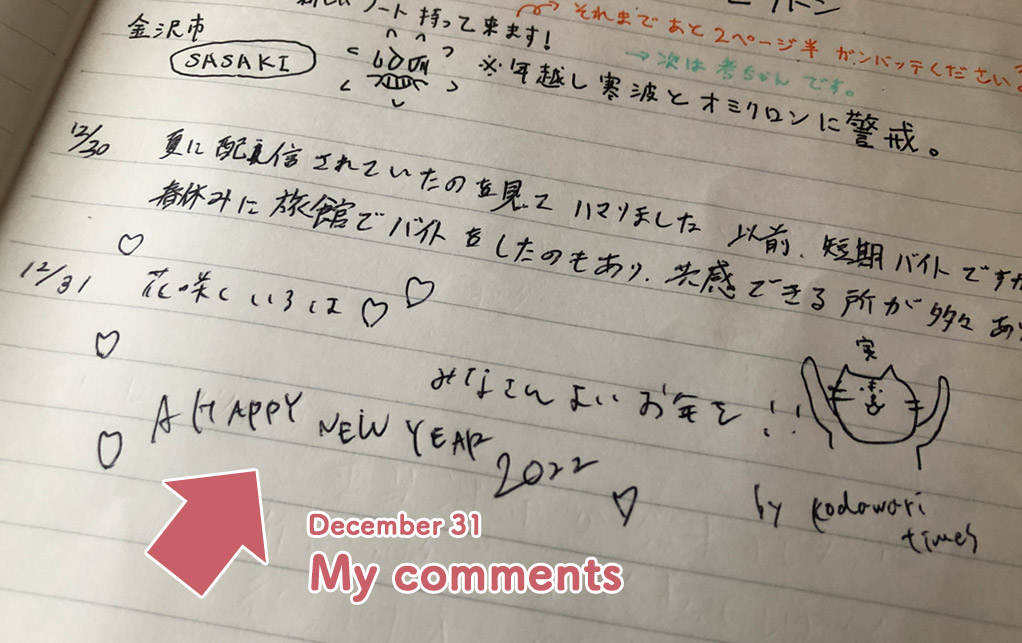 ノート持って来ます!
それまであと2ページ半 ガンバッテください
→次は考ちゃんです。
金沢市
SASAKI
※年越し寒波とオミクロンに警戒。
12/30 夏に配信されていたのを見て ハマりました 以前、短期バイトですが
春休みに旅館でバイトをしたのもあり、共感できる所が多々あり
12/31 花咲くいろは
みなさんよいお年を!!
実
A HAPPY NEW YEAR 2022
by kodawari
times
December 31
My comments